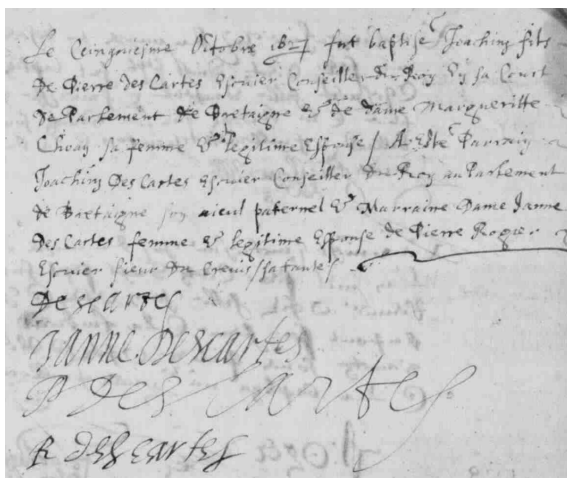 Le Cinquiesme Octobre 1627 fut baptisé Joachim fils
de Pierre des Cartes Escuier Conseiller du Roy En sa Court
de Parlement de Bretaigne Et de dame Margueritte
Chohan sa femme Et legitime Espouse / A esté Parrain
Joachim Des Cartes Escuier Conseiller du Roy au Parlement
de Bretaigne son aieul paternel Et Marraine Dame Janne
Des Cartes femme Et legitime Espouse de Pierre Rogier
Escuier sieur du Crevis / sa tante /
Descartes
Janne Descartes
P Des Cartes
R descartes